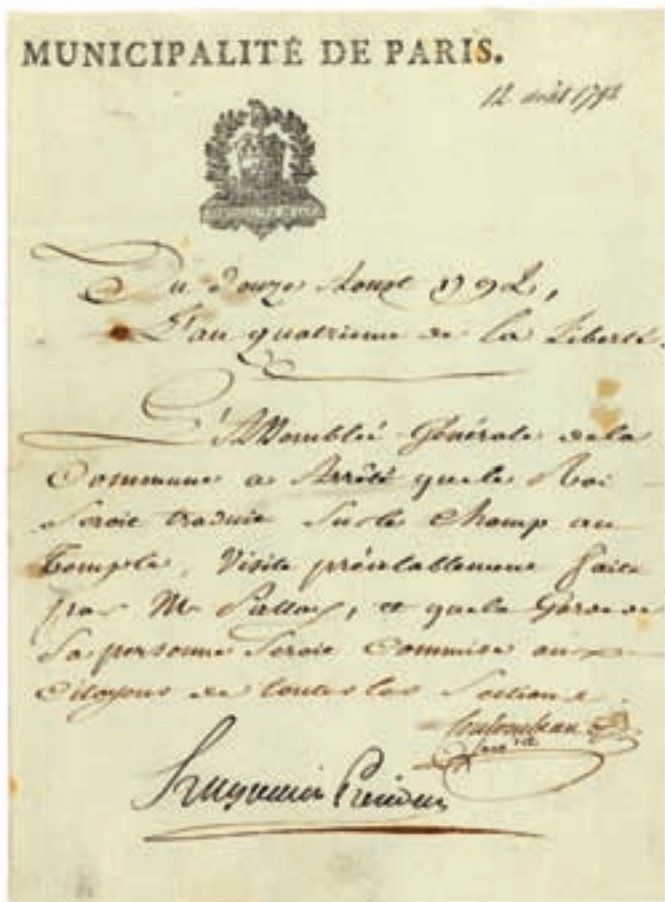 MUNICIPALITÉ DE PARIS.
12 août 1792
Du Douze Aoust 1792,
L'an quatrieme de la Liberté.
L'Assemblée Générale de la
Commune a Arrêté que le Roi
Seroit traduit Sur le Champ au
Temple, Visite préalablement faite
par Mr Palloy, et que la Garde de
Sa personne Seroit Commise aux
Citoyens de toutes les Sections.
Coulombeau
Huguenin Président